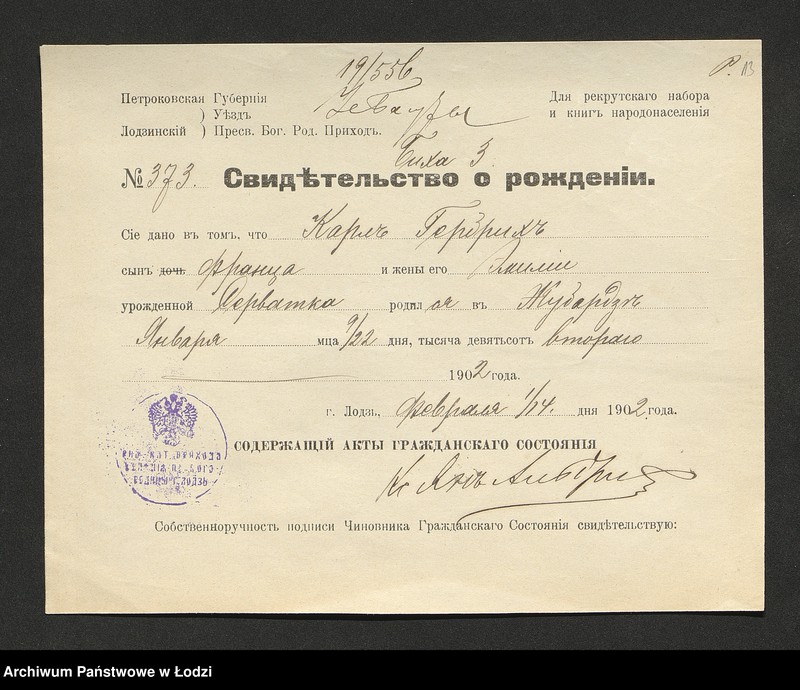 19/556
Р. 13
Петроковская Губернія
) Уѣздъ
Лодзинскій ) Пресв. Бог. Род. Приходъ.
Для рекрутскаго набора
и книгъ народонаселенія
Тиха 3
№ 373. Свидѣтельство о рожденіи.
Сіе дано въ томъ, что Карлъ Гербрихъ
сынъ дочь Франца и жены его Эмиліи
урожденной Серватка родился въ Жубардзъ
Января мца 9/22 дня, тысяча девятьсотъ второго
1902 года.
г. Лодзь, февраля 1/14. дня 1902 года.
СОДЕРЖАЩІЙ АКТЫ ГРАЖДАНСКАГО СОСТОЯНІЯ
Кс Янъ
Собственноручность подписи Чиновника Гражданскаго Состоянія свидѣтельствую:
Archiwum Państwowe w Łodzi